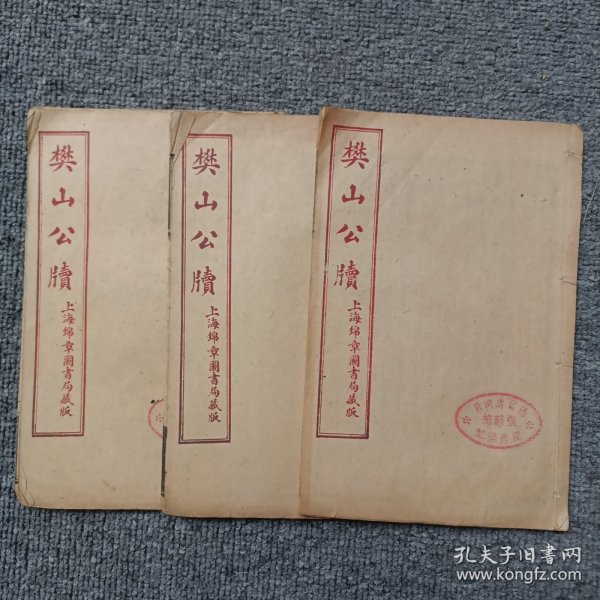 樊山公牘
上海錦章圖書局藏版
樊山公牘
上海錦章圖書局藏版
樊山公牘
上海錦章圖書局藏版
孔夫子旧书网
www.kongfz.com